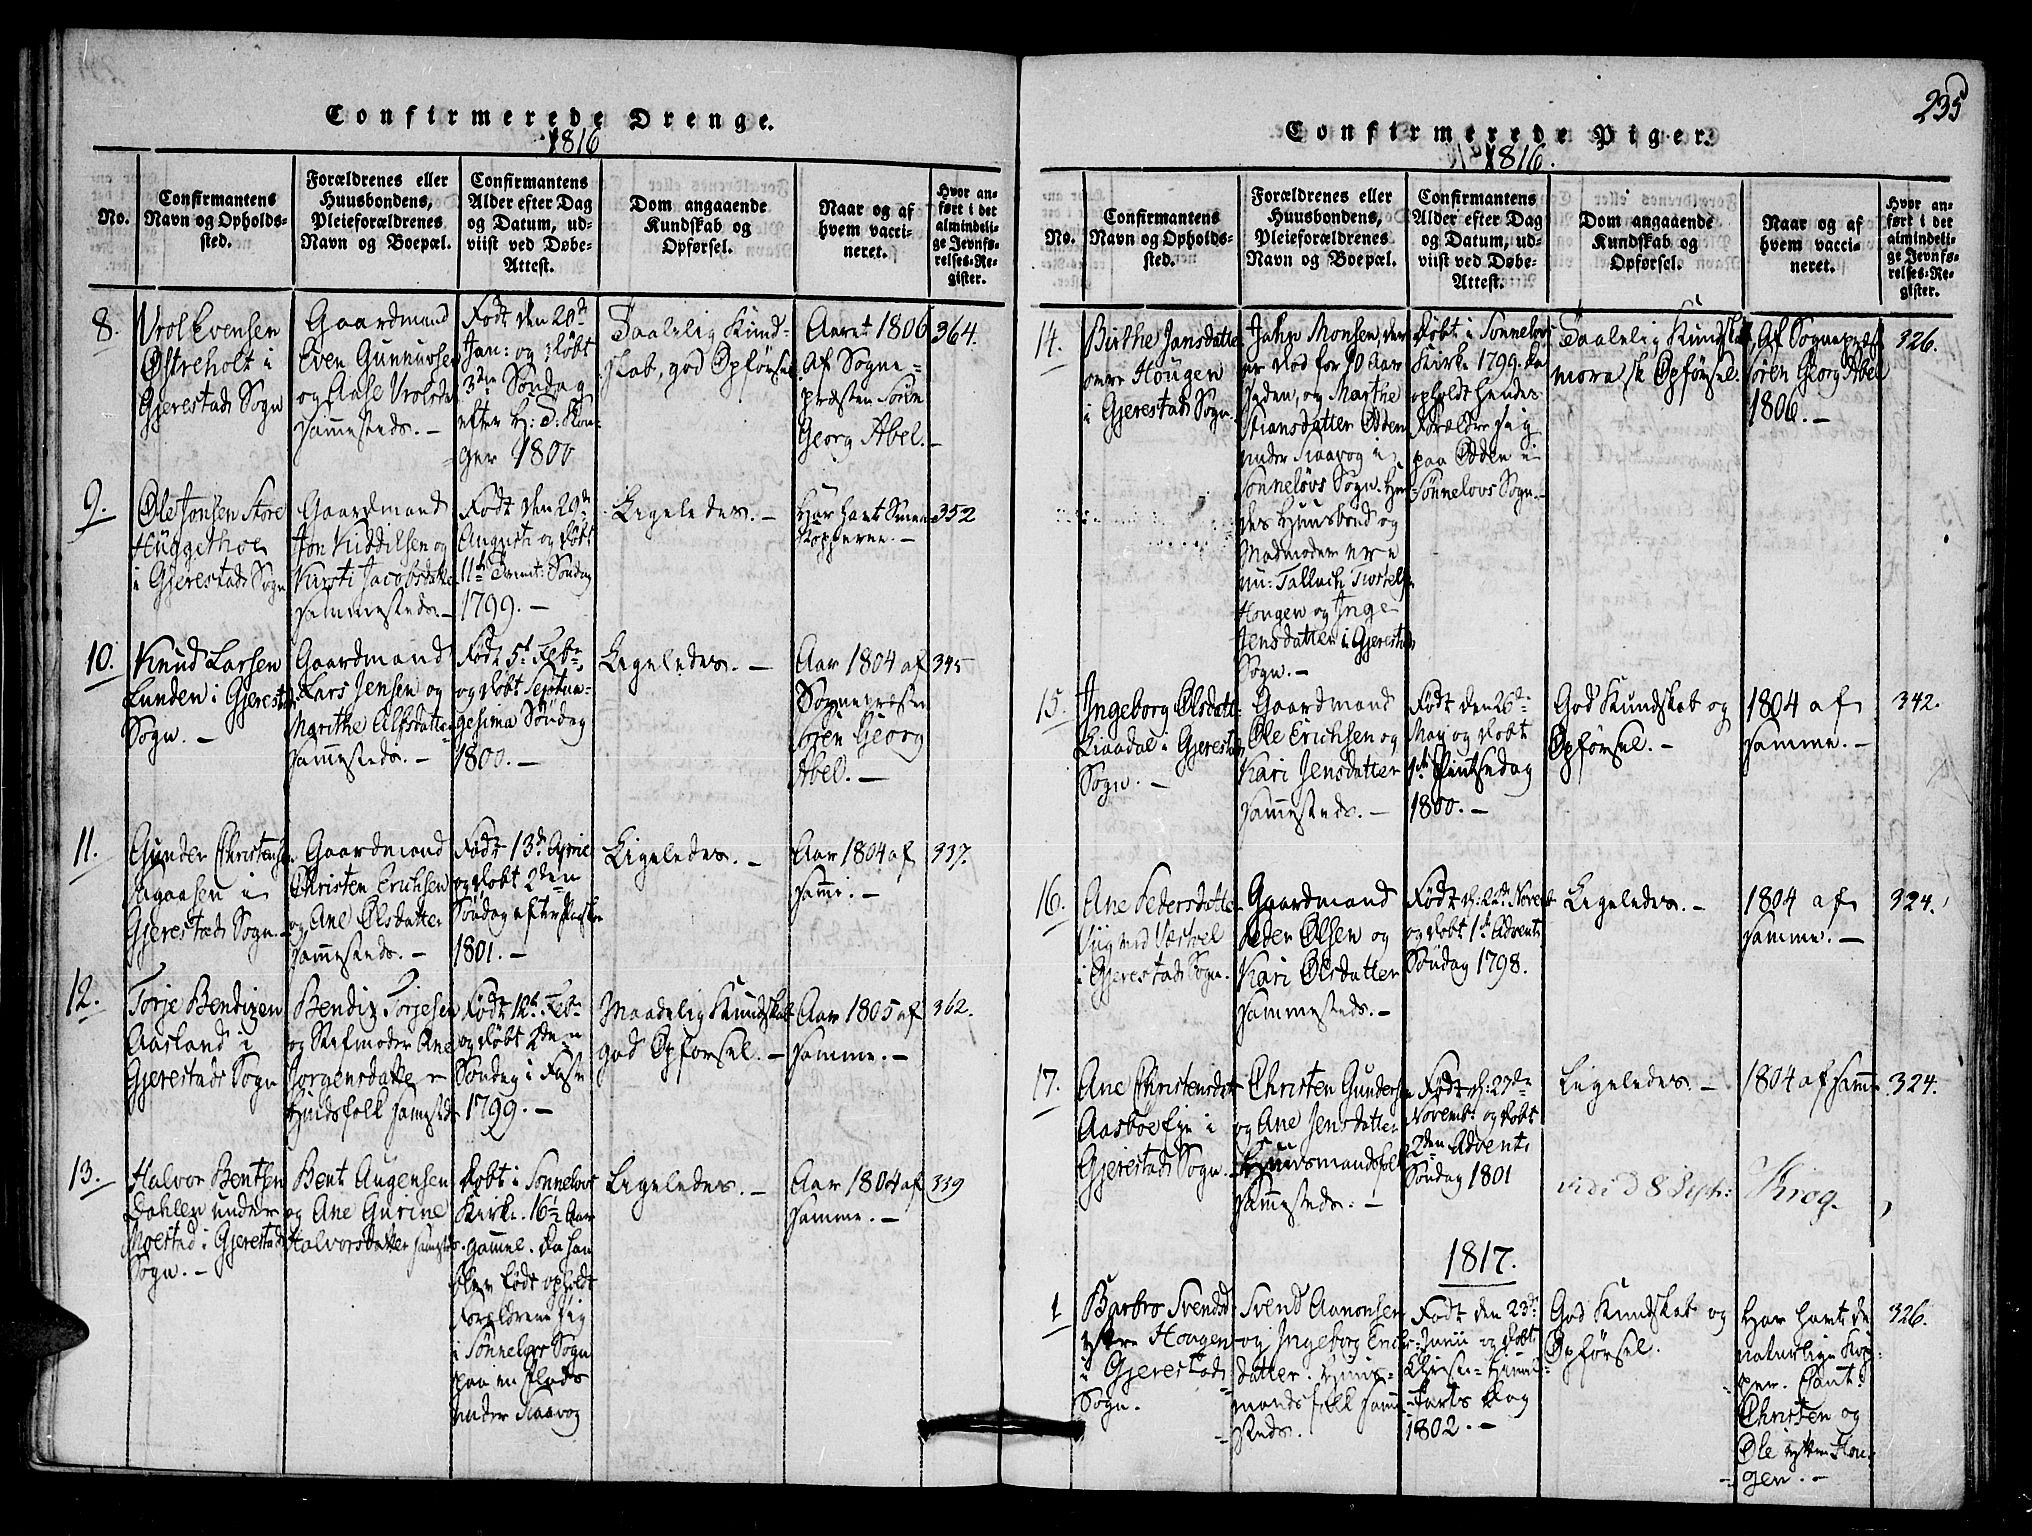 235
Confirmerede Drenge.
1816
No.
Confirmantens
Navn og Opholds-
sted.
Forældrenes eller
Huusbondens,
Pleieforældrenes
Navn og Boepæl.
Confirmantens
Alder efter Dag
og Datum, ud-
viist ved Døbe-
Attest.
Dom angaaende
Kundskab og
Opførsel.
Naar og af
hvem vacci-
neret.
Hvor an-
ført i det
almindeli-
ge Jevnfø-
relses-Re-
gister.
8.
Evensen
Østreholt i
Gjerestads Sogn
Gaardmand
Even Gunnursen
og Aase
sammesteds. —
Født den 20de
Jan: og døbt
3die Søndag
efter H: 3: Kon-
ger 1800
Taalelig Kund-
skab, god Opførsel
Aaret 1806
Af Sogne-
præsten Søren
Georg Abel. —
364.
9.
Ole Jonsen Store
i Gjerestads Sogn
Gaardmand
Jon Kiddilsen og
Kirsti Jacobsdatter
sammesteds. —
Født den 29de
Augusti og døbt
11te Trinit: Søndag
1799. —
Ligeledes. —
Har havt Smaae
Kopperne. —
352
10.
Knud Larsen
Lunden i Gjerestads
Sogn. —
Gaardmand
Lars Jensen og
Marithe Alfsdatter
sammesteds. —
Født 5t Feb:
og døbt Septua-
gesima Søndag
1800. —
Ligeledes. —
Aar 1804 af
Sognepræsten
Søren Georg
Abel. —
345
11.
Gunder Christensen
i
Gjerestads Sogn. —
Gaardmand
Christen Erichsen
og Ane Olsdatter
sammesteds. —
Født 13de April
og døbt 2den
Søndag efter Paaske
1801. —
Ligeledes. —
Aar 1804 af
samme. —
337.
12.
Torje Bendixen
Aasland i
Gjerestads Sogn
Bendix Torjesen
og Stefmoder Ane
Jorgensdatter
sammesteds
Født 12te Feb:
og døbt 2den
Søndag i Faste
1799. —
Maadelig Kundskab
god Opførsel. —
Aar 1805 af
samme. —
362.
13.
Halvor Bentsen
Dahlen under
Moestad i Gjerestads
Sogn. —
Bent Augensen
og Ane Gurine
Halvorsdatter
Døbt i Sønneløvs
Kirke. 16½ Aar
gammel. Da han
blev født opholdt
Forældrene sig
i Sønneløvs Sogn
paa en Plads
under Staavog
Ligeledes. —
Aar 1804 af
samme. —
339
Confirmerede Piger.
1816.
No.
Confirmantens
Navn og Opholds-
sted.
Forældrenes eller
Huusbondens,
Pleieforældrenes
Navn og Boepæl.
Confirmantens
Alder efter Dag
og Datum, ud-
viist ved Døbe-
Attest.
Dom angaaende
Kundskab og
Opførsel.
Naar og af
hvem vacci-
neret.
Hvor an-
ført i det
almindeli-
ge Jevnfø-
relses-Re-
gister.
14.
Birthe Jansdatter
Hougen
i Gjerestads Sogn.
Jahn Monsen, der
er død for 10 Aar
siden, og Marthe
Stiansdatter Odden
under Staavog i
Sønneløvs Sogn. Hen-
des Huusbond og
Madmoder ere
nu: Tallach Torkels
Hougen og Inge
Jensdatter i Gjerestads
Sogn. —
Døbt i Sønneløvs
Kirke 1799. Da
opholdt hendes
Forældre sig
paa Odden i
Sønneløvs Sogn. —
Taalelig Kundskab,
moralsk Opførsel.
Af Sognepræst
Søren Georg Abel
1806. —
326.
15.
Ingeborg Olsdatter
i Gjerestads
Sogn. —
Gaardmand
Ole Erichsen og
Kari Jensdatter
sammesteds. —
Født den 26de
Maj og døbt
1ste Pintsedag
1800. —
God Kundskab og
Opførsel. —
1804 af
samme. —
342.
16.
Ane Pedersdatter
Vestøl
i Gjerestads Sogn.
Gaardmand
Peder Olsen og
Kari Olsdatter
sammesteds. —
Født d: 22de Novemb
og døbt 1ste Advents
Søndag 1798.
Ligeledes. —
1804 af
samme. —
324.
17.
Ane Christensdatter
Aasboe Eje i
Gjerestads Sogn. —
Christen Gundersen
og Ane Jensdatter
Huusmandsfolk
sammesteds. —
Født d: 27de
Novemb: og døbt
2den Advents
Søndag 1801
Ligeledes. —
1804 af samme
324.
vidi d 8 Sept: Krog.
1817.
1
Barbro Svendsd
Hougen
i Gjerestads
Sogn.
Svend Aanonsen
og Ingeborg Erichs-
datter. Huus-
mandsfolk samme-
steds.
Født den 23de
Junii og døbt
Christi Himmel-
farts Dag
1802. —
God Kundskab og
Opførsel.
Har havt de
naturlige Kop-
per.
Christen og
Ole Hou-
gen. —
326.